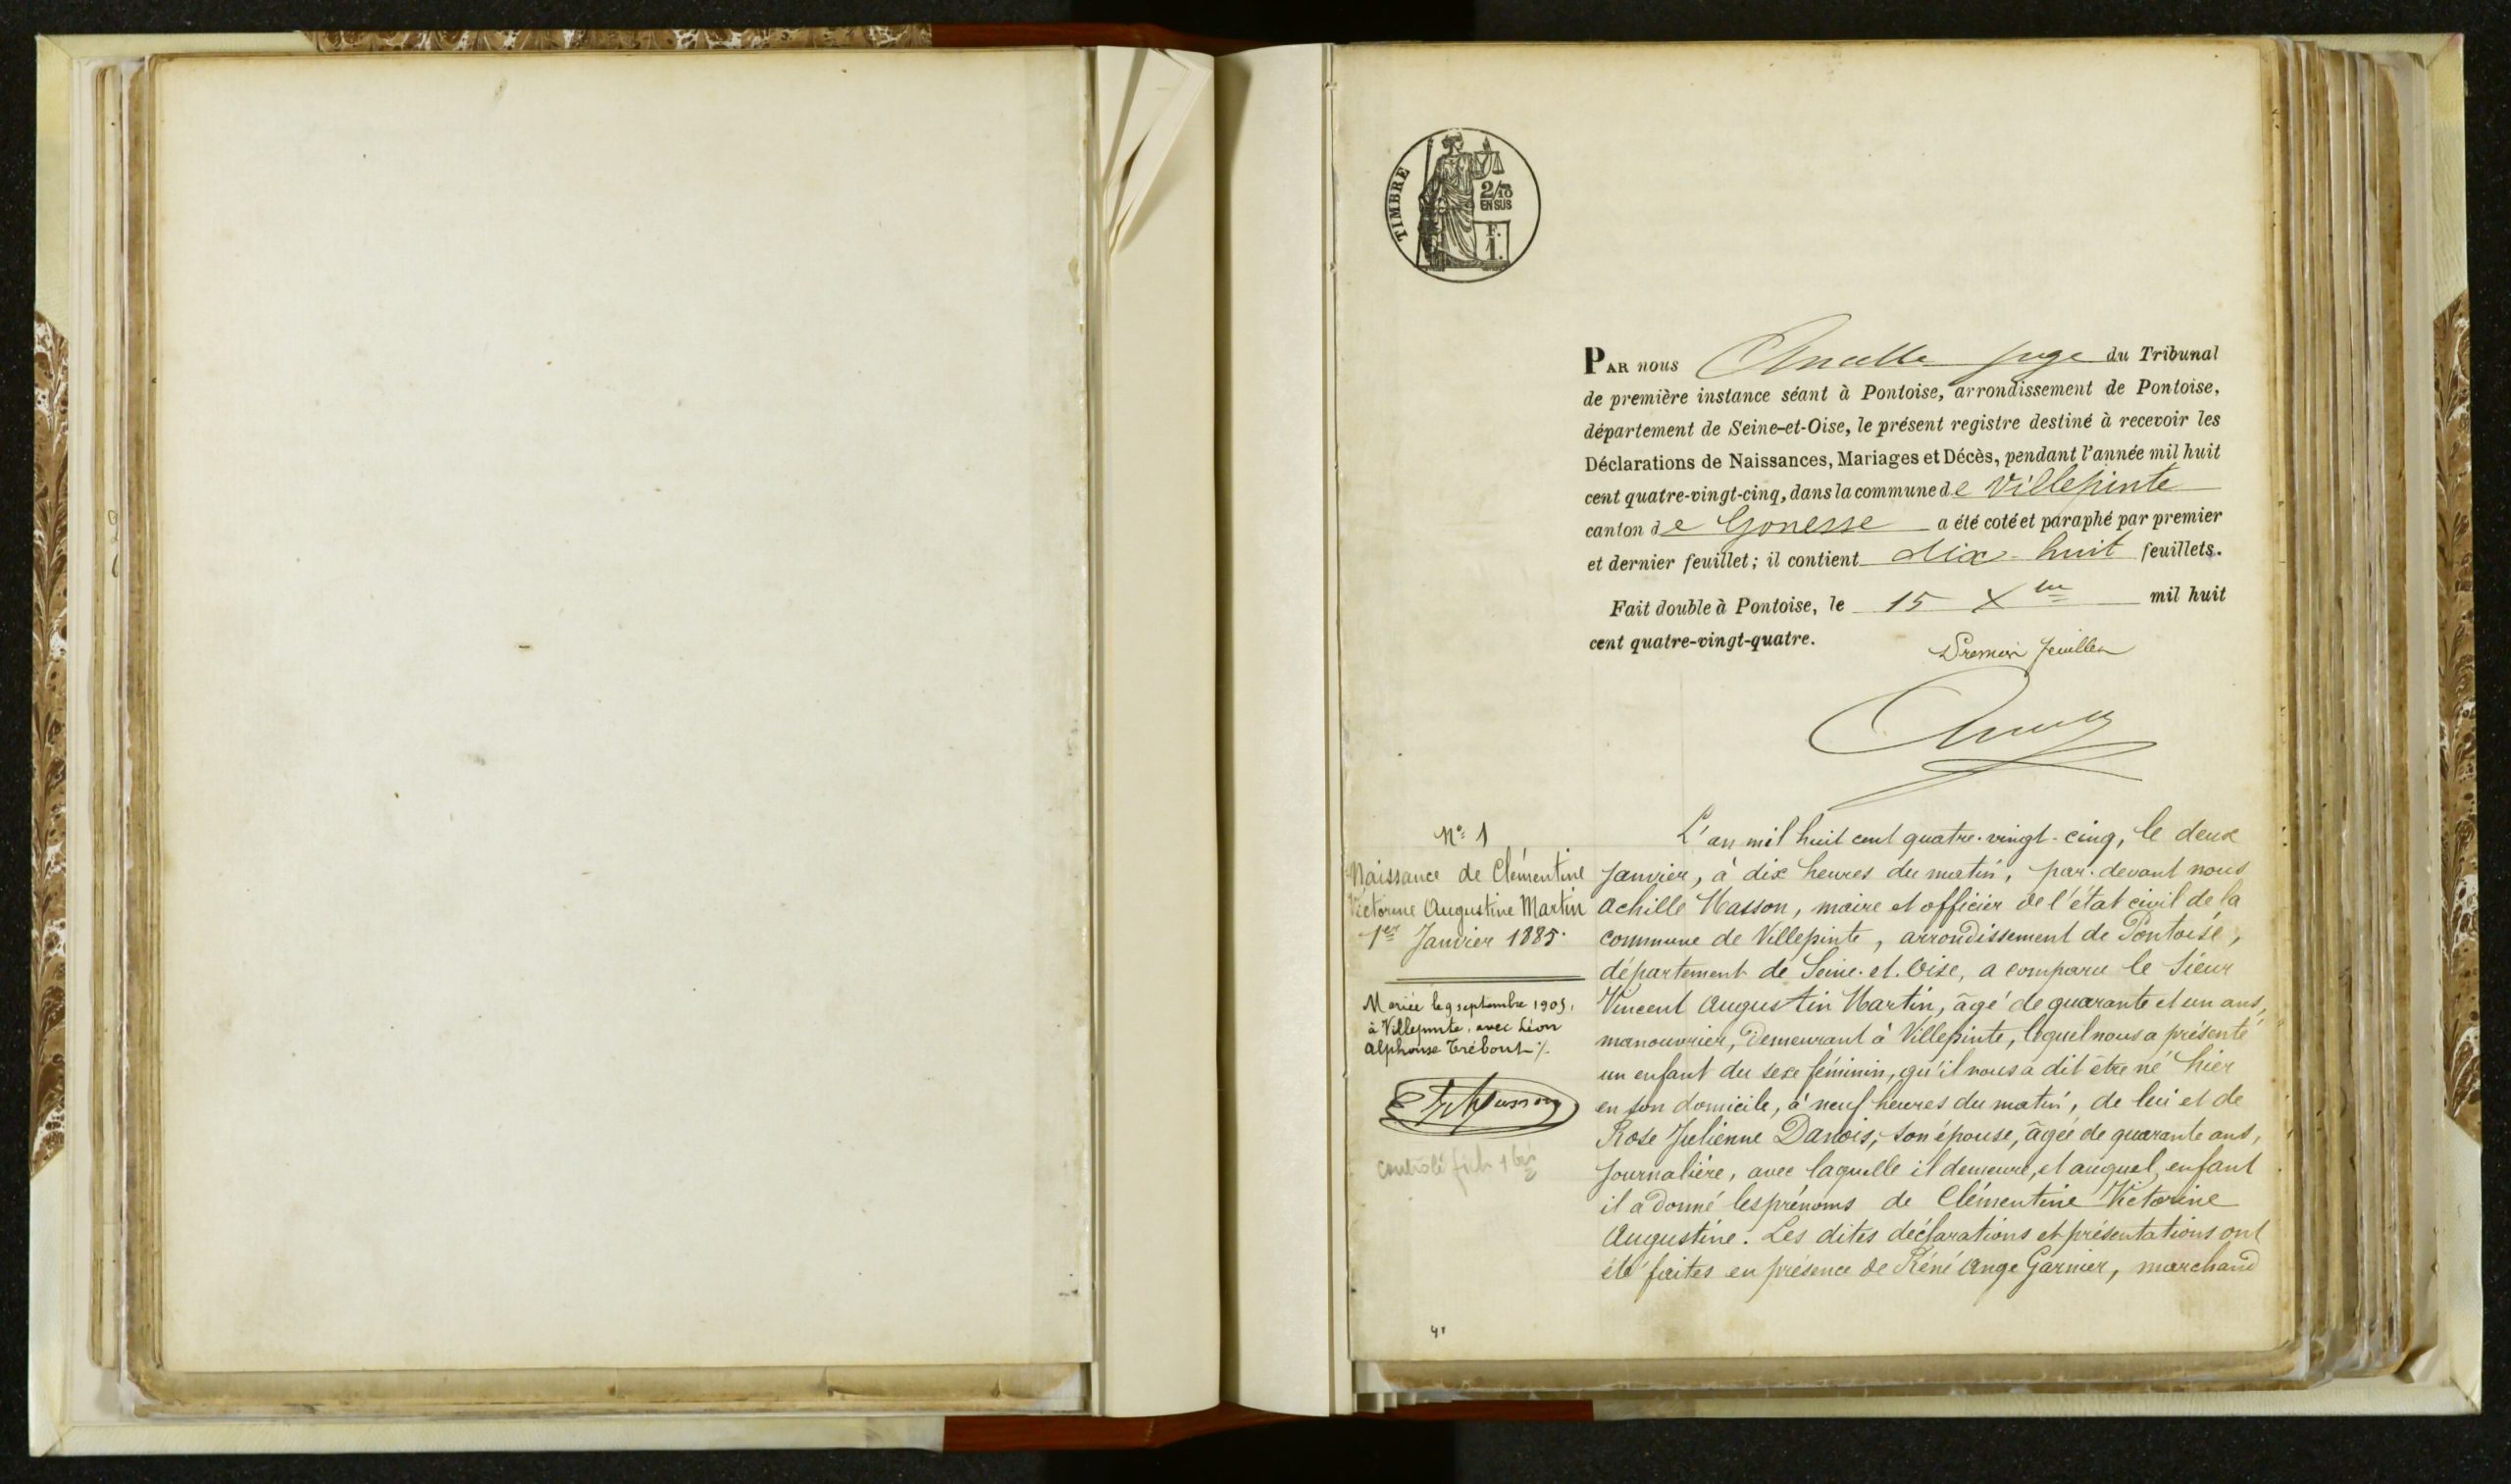 TIMBRE
2/10
EN SUS
F.
1.
PAR nous Ancelle juge du Tribunal
de première instance séant à Pontoise, arrondissement de Pontoise,
département de Seine-et-Oise, le présent registre destiné à recevoir les
Déclarations de Naissances, Mariages et Décès, pendant l'année mil huit
cent quatre-vingt-cinq, dans la commune de Villepinte
canton de Gonesse a été coté et paraphé par premier
et dernier feuillet; il contient dix-huit feuillets.
Fait double à Pontoise, le 15 Xbre mil huit
cent quatre-vingt-quatre.
Premier feuillet
N° 1
Naissance de Clémentine
Victorine Augustine Martin
1er Janvier 1885.
Mariée le 9 septembre 1905,
à Villepinte, avec Léon
Alphonse Trébout ./.
contrôlé
L'an mil huit cent quatre-vingt-cinq, le deux
Janvier, à dix heures du matin, par-devant nous
Achille Masson, maire et officier de l'état civil de la
commune de Villepinte, arrondissement de Pontoise,
département de Seine-et-Oise, a comparu le sieur
Vincent Augustin Martin, âgé de quarante et un ans,
manouvrier, demeurant à Villepinte, lequel nous a présenté
un enfant du sexe féminin, qu'il nous a dit être né hier
en son domicile, à neuf heures du matin, de lui et de
Rose Julienne Danois, son épouse, âgée de quarante ans,
Journalière, avec laquelle il demeure, et auquel enfant
il a donné les prénoms de Clémentine Victorine
Augustine. Les dites déclarations et présentations ont
été faites en présence de Réné Ange Garnier, marchand